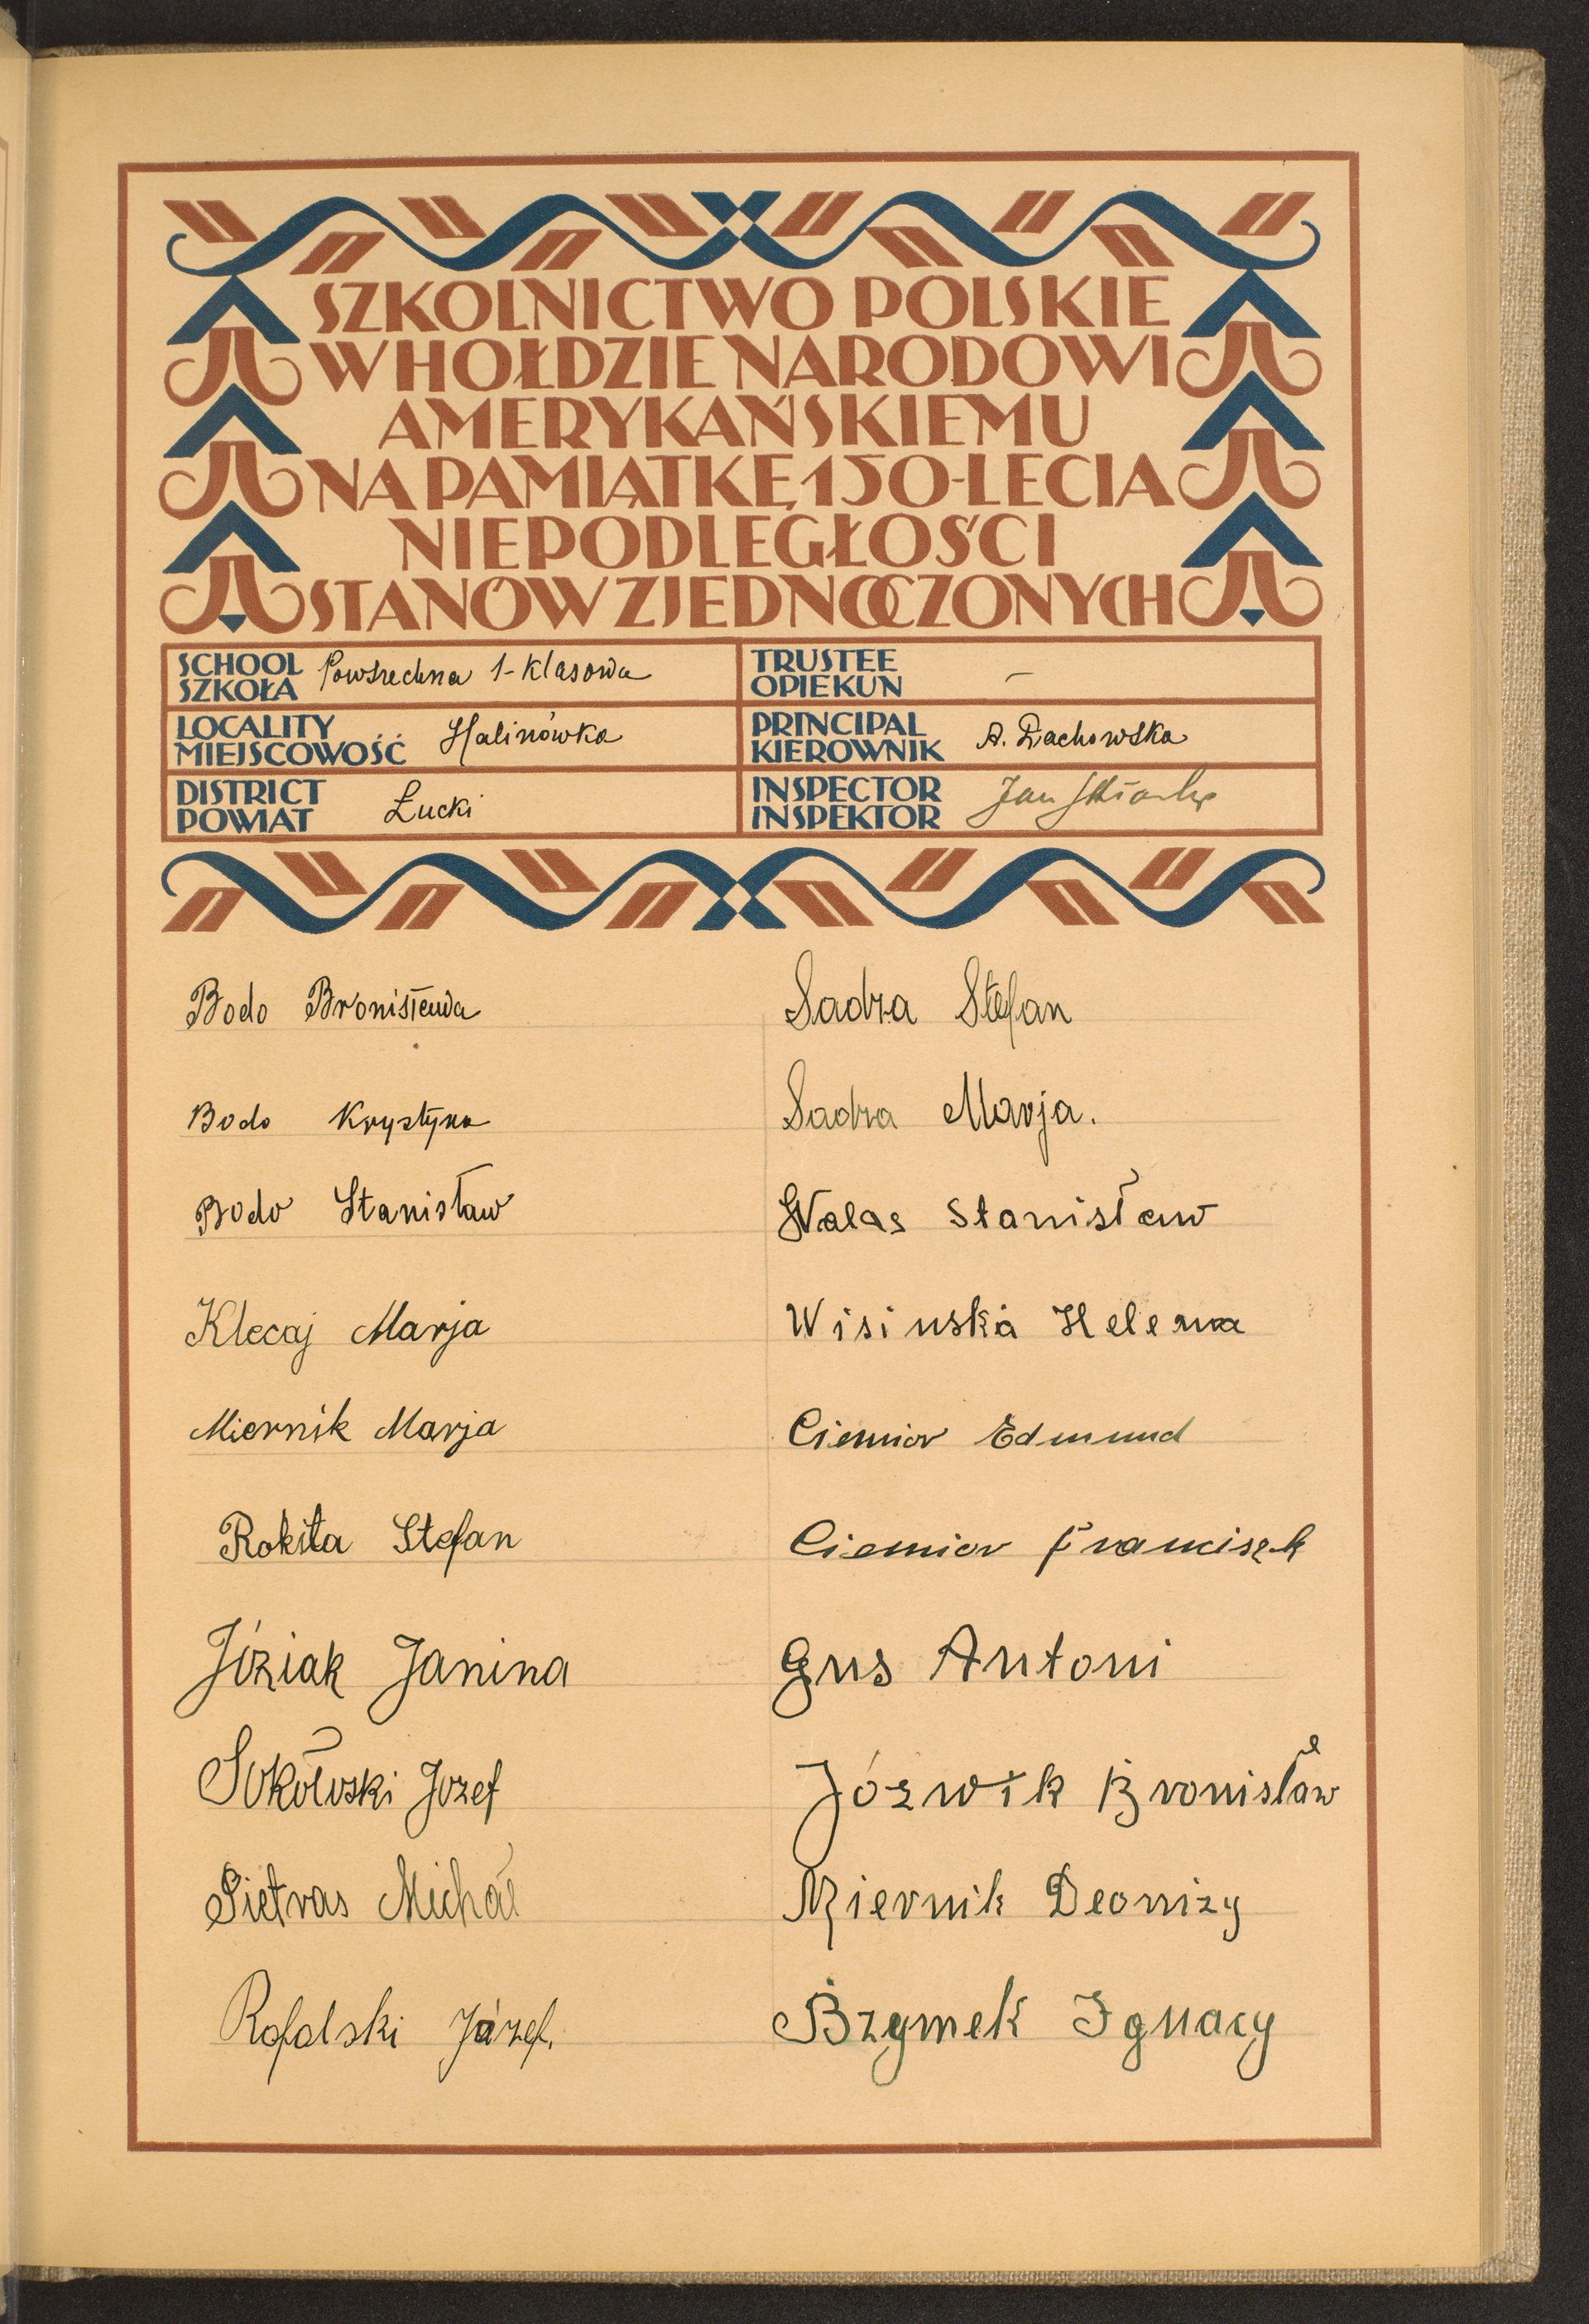 SZKOLNICTWO POLSKIE
W HOŁDZIE NARODOWI
AMERYKAŃSKIEMU
NA PAMIĄTKĘ 150-LECIA
NIEPODLEGŁOŚCI
STANÓW ZJEDNOCZONYCH
SCHOOL
SZKOŁA
Powszechna 1-klasowa
TRUSTEE
OPIEKUN
—
LOCALITY
MIEJSCOWOŚĆ
Halinówka
PRINCIPAL
KIEROWNIK
A.
DISTRICT
POWIAT
Łucki
INSPECTOR
INSPEKTOR
Jan
Bodo Bronisława
Bodo Krystyna
Bodo Stanisław
Klecaj Marja
Miernik Marja
Rokita Stefan
Józiak Janina
Sokołoski Jozef
Pietras Michał
Rafalski Józef.
Sadza Stefan
Sadza Marja.
Walas Stanisław
Wisiuska Helena
Ciemior Edmund
Ciemior Franciszek
Gus Antoni
Józwik Bronisław
Miernik Deonizy
Bzymek Ignacy